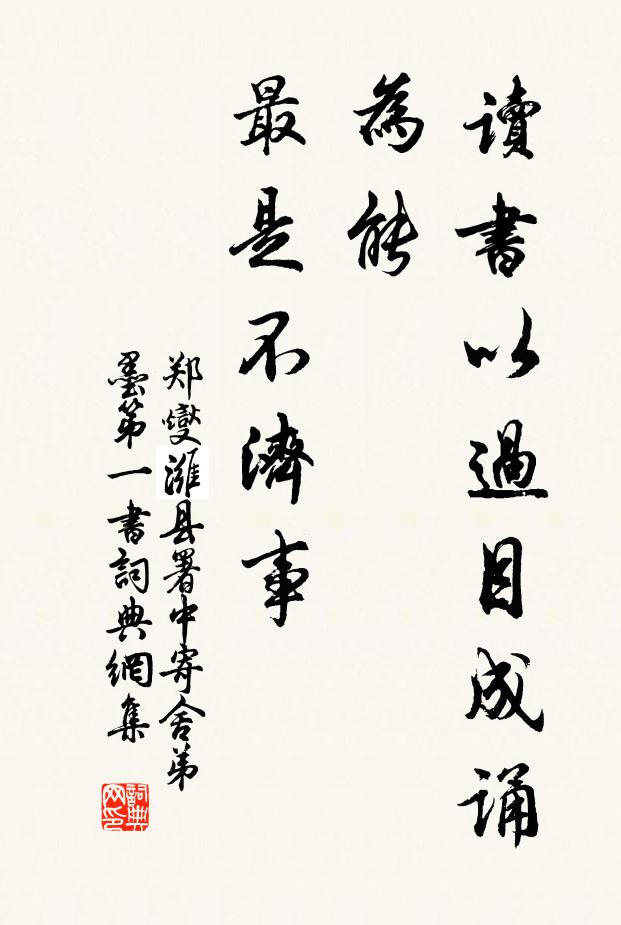 讀書以過目成誦
為能
最是不濟事
郑燮潍县署中寄舍弟
墨第一書詞典網集
詞典网印